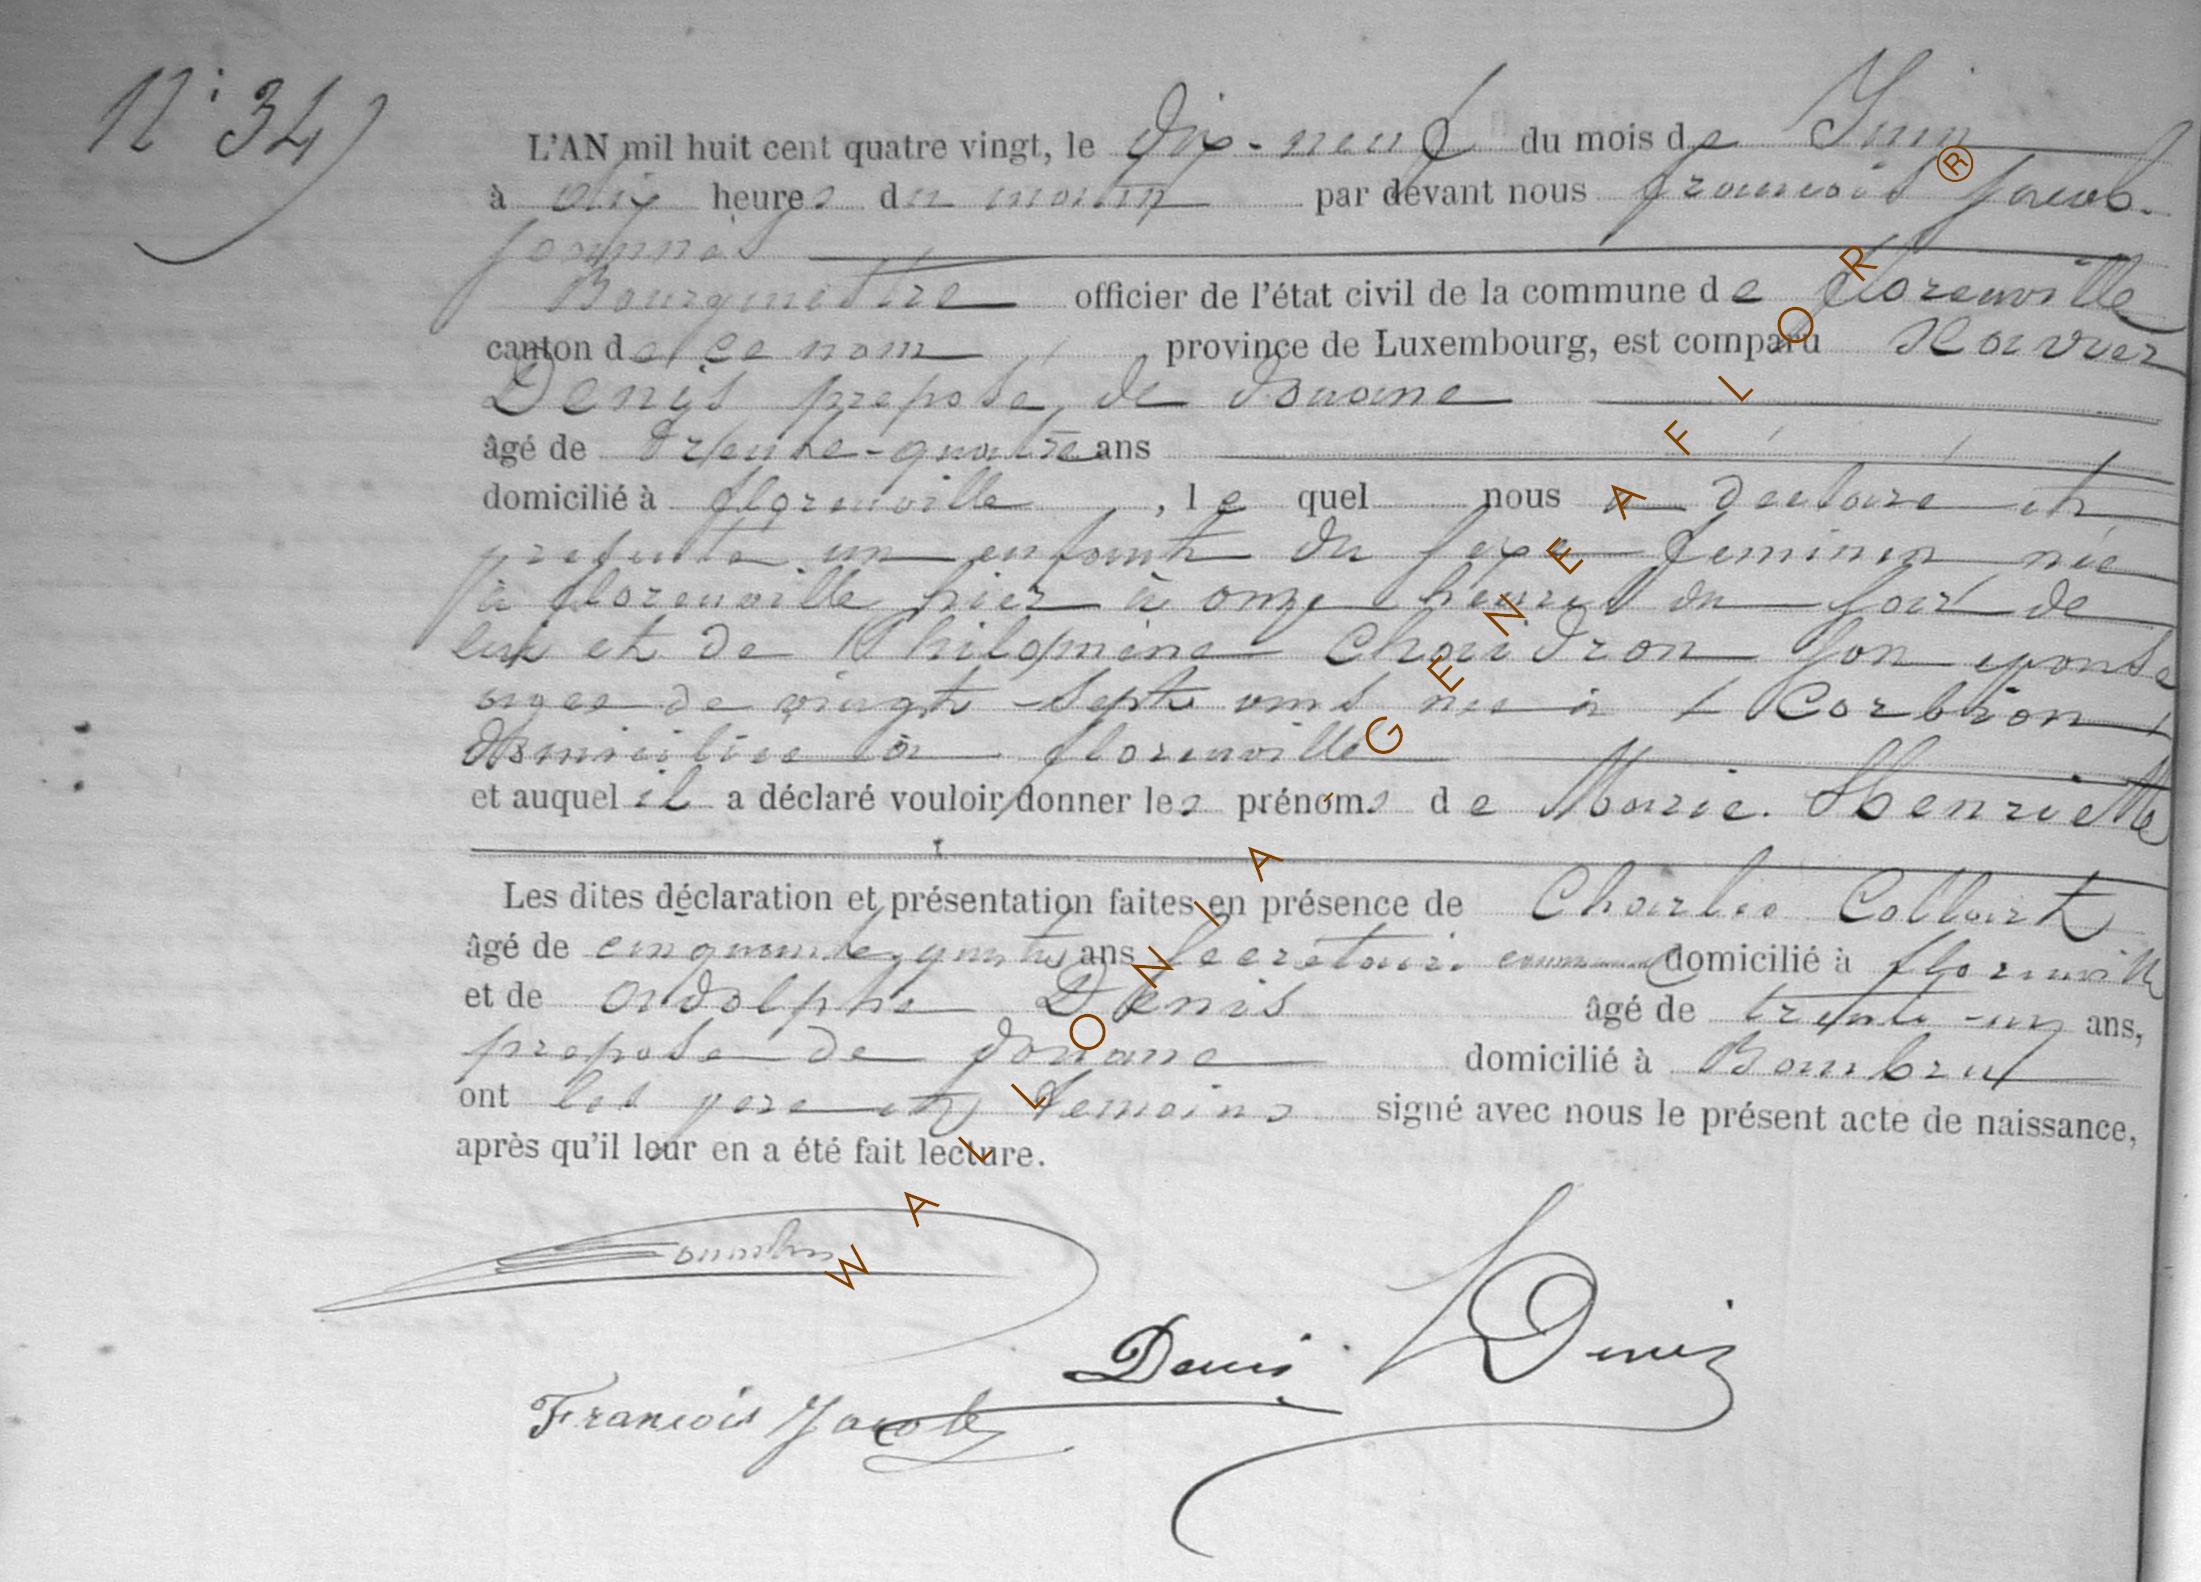 N° 34
L'AN mil huit cent quatre vingt, le dix-neuf du mois de Juin
à dix heures du matin par devant nous françois Jacob.
Jonnnes
Bourgmestre officier de l'état civil de la commune de florenville
canton de ce nom province de Luxembourg, est comparu Xavier
Denis préposé de douane
âgé de trente-quatre ans
domicilié à florenville, le quel nous a déclaré et
présenté un enfant du sexe feminin née
à florenville hier à onze heures du soir de
lui et de Philomène Chaidron son epouse
agée de vingt-sept ans née à Corbion
domiciliée à florenville
et auquel il a déclaré vouloir donner les prénoms de Marie. Henriette
Les dites déclaration et présentation faites en présence de Charles Collart
âgé de cinquante quatre ans secrétaire communal domicilié à florenville
et de Adolphe Denis âgé de trente-un ans,
préposé de douane domicilié à
ont les père et témoins signé avec nous le présent acte de naissance,
après qu'il leur en a été fait lecture.
Denis
Denis
François Jacob
WALLONIA GENEAFLOR®